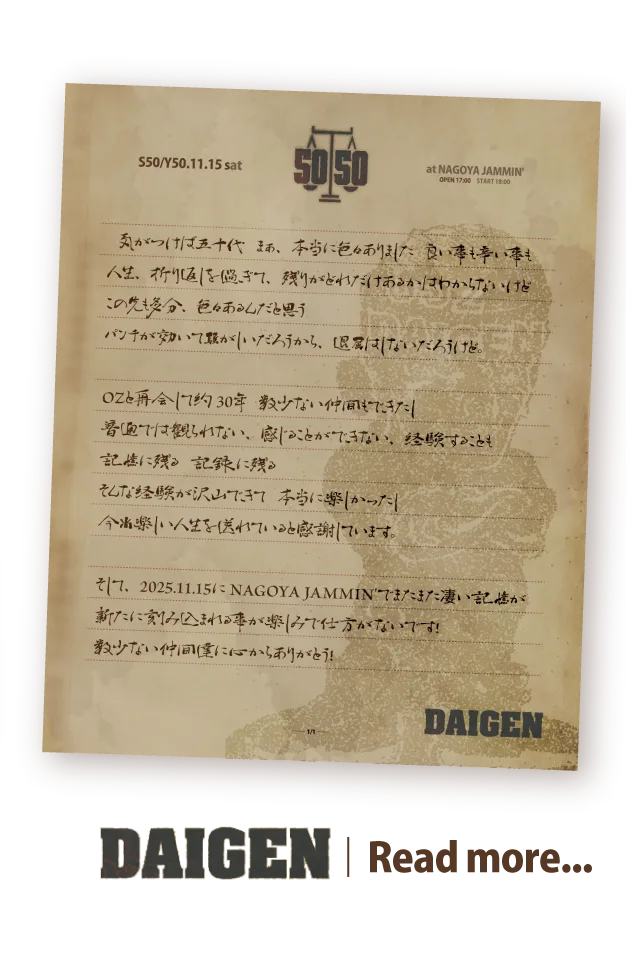 S50/Y50.11.15 sat
50 50
at NAGOYA JAMMIN'
OPEN 17:00 START 18:00
気がつけば五十代 まぁ、本当に色々ありました 良い事も辛い事も
人生、折り返しを過ぎて、残りがどれだけあるかはわからないけど
この先も多分、色々あるんだと思う
パンチが効いて騒がしいだろうから、退屈はしないだろうけど。
OZと再会して約30年 数少ない仲間もできたし
普通では観られない、感じることができない、経験することも
記憶に残る 記録に残る
そんな経験が沢山できて 本当に楽しかったし
今尚楽しい人生を送れていると感謝しています。
そして、2025.11.15に NAGOYA JAMMIN'でまたまた凄い記憶が
新たに刻み込まれる事が楽しみで仕方がないです!
数少ない仲間達に心からありがとう!
1/1
DAIGEN
DAIGEN | Read more...